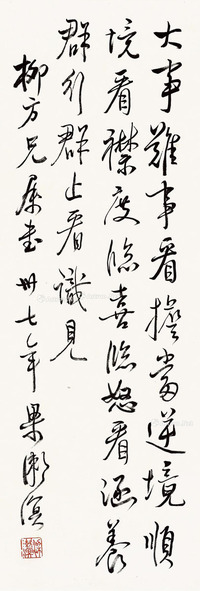 大事難事看擔當逆境順
境看襟度臨喜臨怒看涵養
群行群止看識見
柳方兄屬書卅七年果澂溟